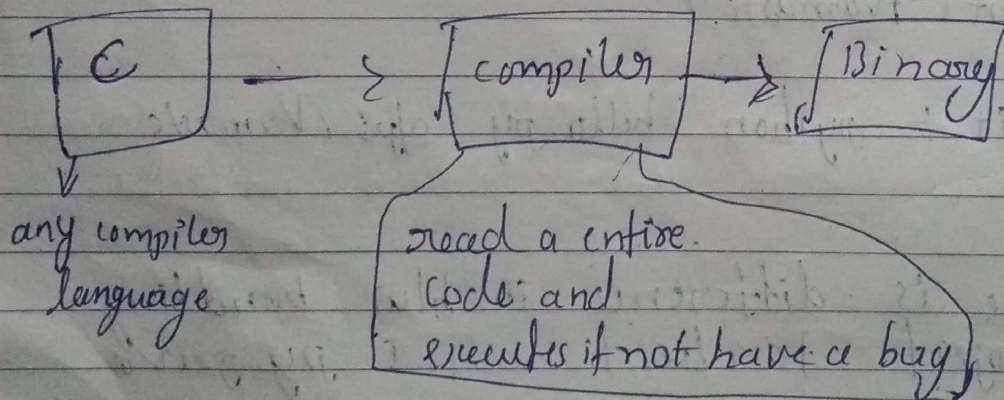 C
compiler
Binary
any compiler
language
read a entire.
code and
executes if not have a bug